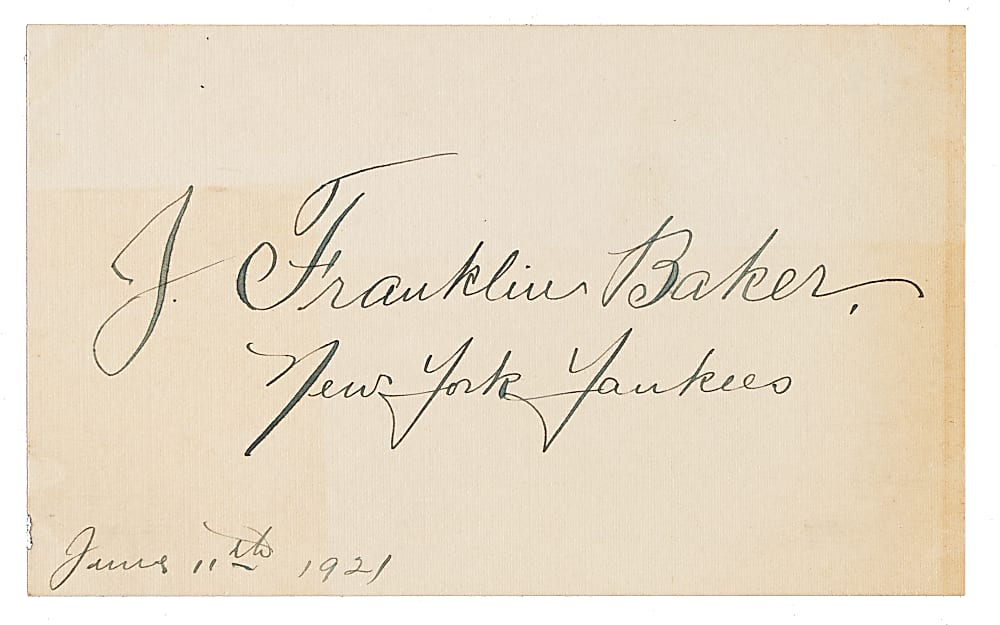 J. Franklin Baker,
New York Yankees
June 11th 1921